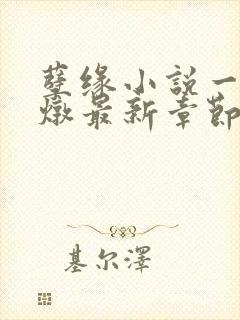 孽缘小説一
燉最新章節
基尔澤